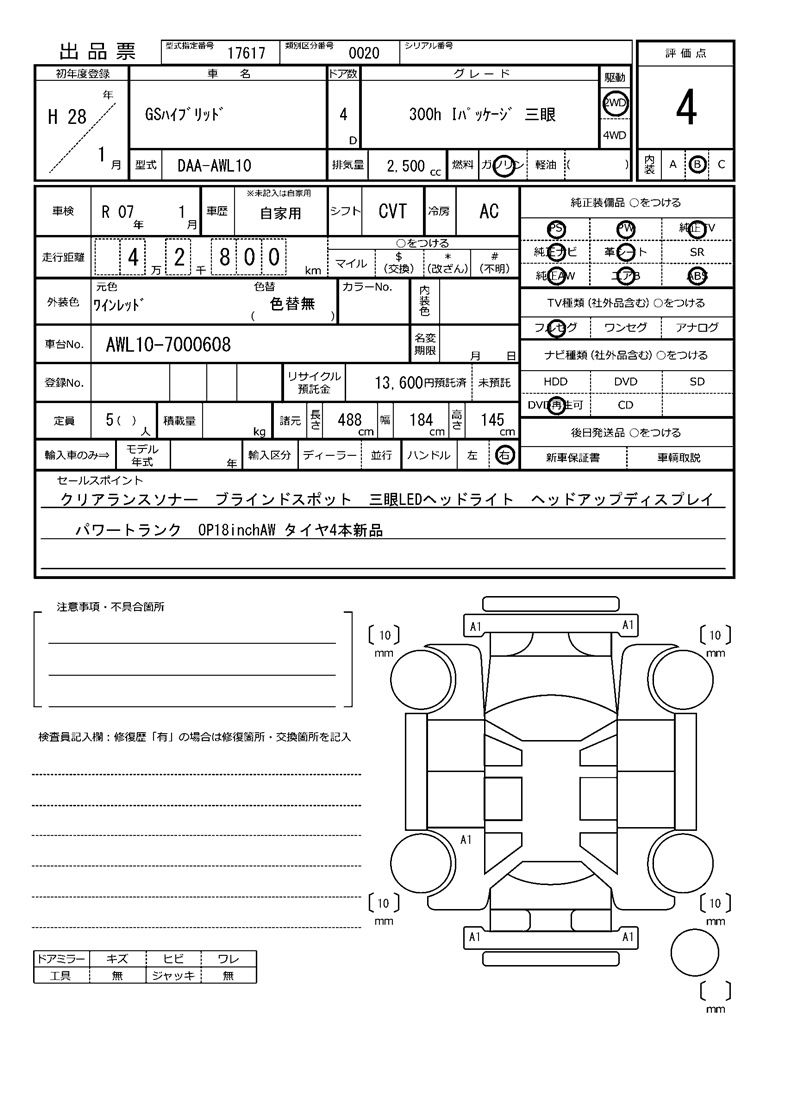 出品票
型式指定番号 17617 類別区分番号 0020 シリアル番号
評価点
初年度登録 車名 ドア数 グレード 駆動
H 28 年 1 月 GSハイブリッド 4 D 300h Iパッケージ 三眼 2WD 4WD
4
型式 DAA-AWL10 排気量 2,500 cc 燃料 ガソリン 軽油 ( )
内装 A B C
車検 R 07 年 1 月 車歴 ※未記入は自家用 自家用 シフト CVT 冷房 AC
純正装備品 ○をつける
PS PW 純正TV
純正ナビ 革シート SR
純正AW エアB ABS
走行距離 4 万 2 千 8 0 0 km
○をつける
マイル $ (交換) * (改ざん) # (不明)
外装色 元色 ワインレッド 色替 ( 色替無 ) カラーNo. 内装色
TV種類 (社外品含む) ○をつける
フルセグ ワンセグ アナログ
車台No. AWL10-7000608 名変期限 月 日
ナビ種類 (社外品含む) ○をつける
HDD DVD SD
DVD再生可 CD
登録No. リサイクル預託金 13,600円預託済 未預託
定員 5 ( ) 人 積載量 kg 諸元 長さ 488 cm 幅 184 cm 高さ 145 cm
後日発送品 ○をつける
新車保証書 車輌取説
輸入車のみ⇒ モデル年式 年 輸入区分 ディーラー 並行 ハンドル 左 右
セールスポイント
クリアランスソナー ブラインドスポット 三眼LEDヘッドライト ヘッドアップディスプレイ
パワートランク OP18inchAW タイヤ4本新品
注意事項・不具合箇所
A1 A1
[10] mm [10] mm
検査員記入欄：修復歴「有」の場合は修復箇所・交換箇所を記入
A1
[10] mm [10] mm
A1 A1
ドアミラー キズ ヒビ ワレ
工具 無 ジャッキ 無
[ ] mm